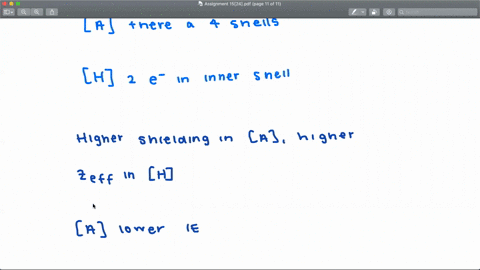 Assignment 1E[24].pdf (page 11 of 11)
Search
[A] there a 4 shells
[H] 2 e⁻ in inner shell
Higher shielding in [A], higher
Zeff in [H]
[A] lower IE